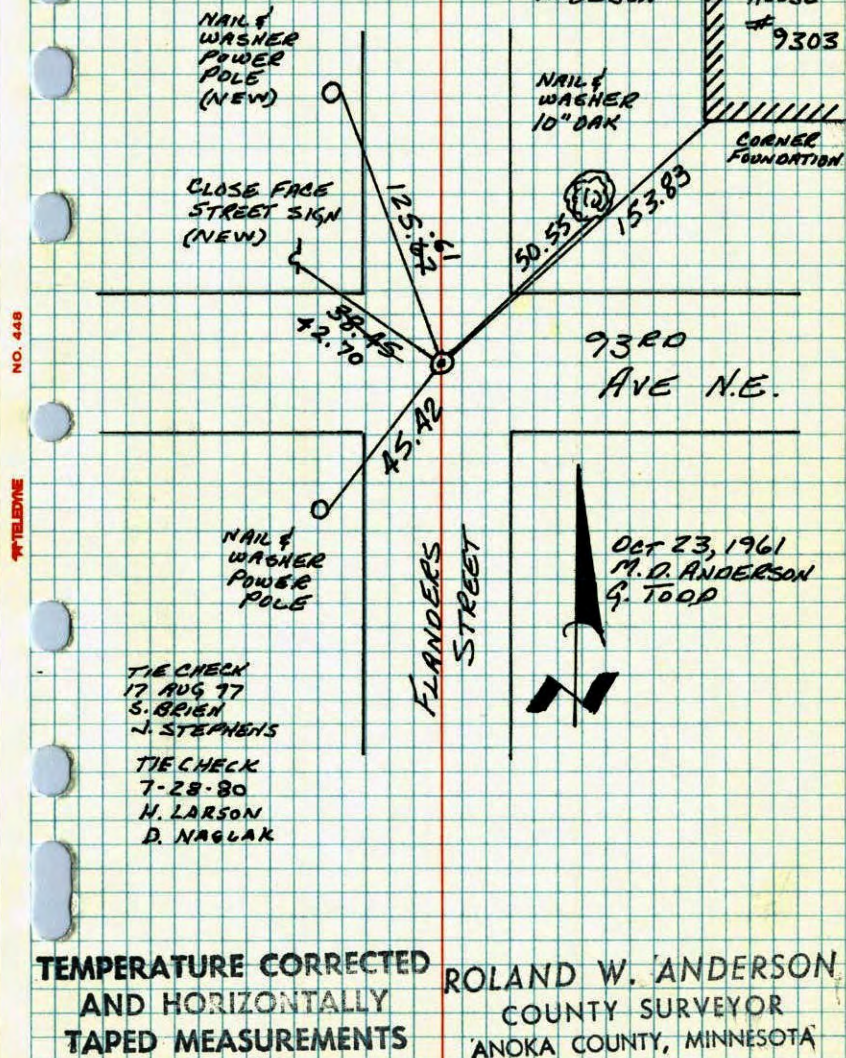 NAIL &
WASHER
POWER
POLE
(NEW)
#
9303
NAIL &
WASHER
10" OAK
CORNER
FOUNDATION
CLOSE FACE
STREET SIGN
(NEW)
125.62
.61
50.55
153.83
38.45
42.70
93RD
AVE N.E.
45.42
NAIL &
WASHER
POWER
POLE
FLANDERS
STREET
OCT 23, 1961
M.D. ANDERSON
G. TODD
TIE CHECK
17 AUG 77
S. BRIEN
J. STEPHENS
TIE CHECK
7-28-80
H. LARSON
D. NAGLAK
NO. 448
TELEDYNE
TEMPERATURE CORRECTED
AND HORIZONTALLY
TAPED MEASUREMENTS
ROLAND W. ANDERSON
COUNTY SURVEYOR
ANOKA COUNTY, MINNESOTA